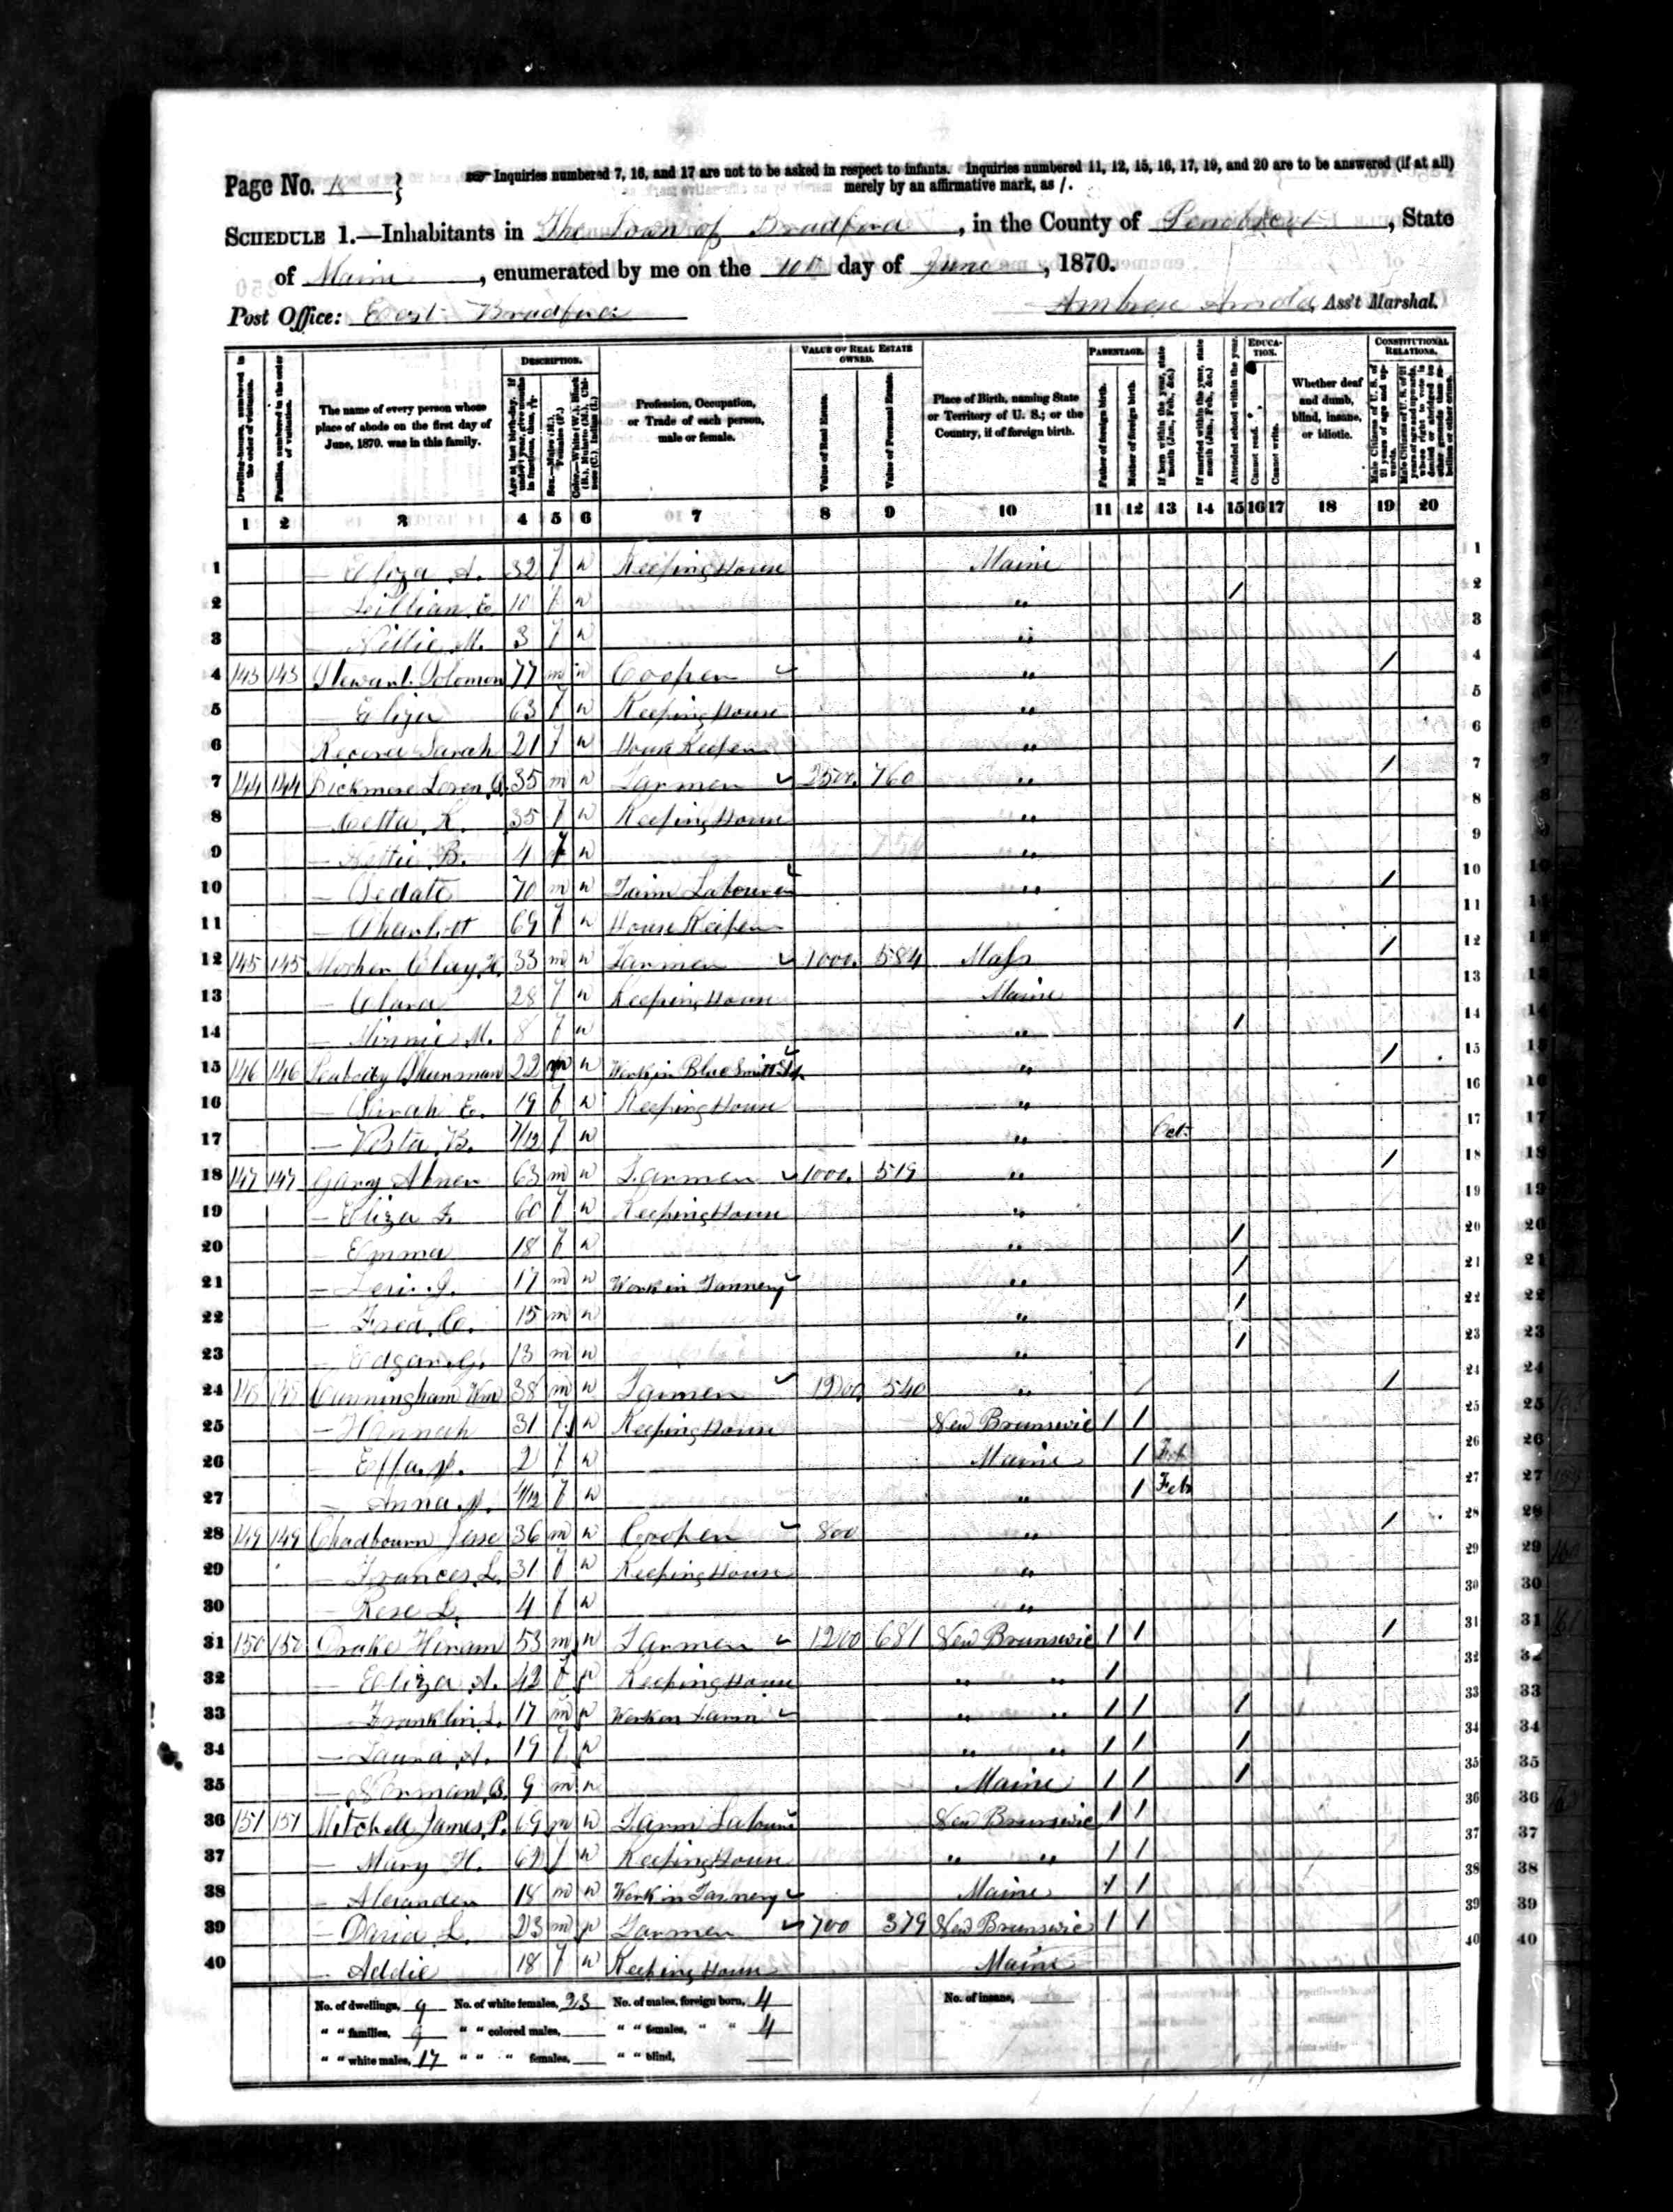 Page No. 18 }
Inquiries numbered 7, 16, and 17 are not to be asked in respect to infants. Inquiries numbered 11, 12, 15, 16, 17, 19, and 20 are to be answered (if at all)
merely by an affirmative mark, as /.
SCHEDULE 1.—Inhabitants in The Town of Bradford, in the County of Penobscot, State
of Maine, enumerated by me on the 10th day of June, 1870.
Post Office: East Bradford
Ambrose Arnold, Ass't Marshal.
Dwelling-houses, numbered in the order of visitation.
Families, numbered in the order of visitation.
The name of every person whose place of abode on the first day of June, 1870, was in this family.
DESCRIPTION.
Age at last birth-day. If under 1 year, give months in fractions, thus, 3/12
Sex.—Males (M.), Females (F.)
Color.—White (W.), Black (B.), Mulatto (M.), Chinese (C.), Indian (I.)
Profession, Occupation, or Trade of each person, male or female.
VALUE OF REAL ESTATE OWNED.
Value of Real Estate.
Value of Personal Estate.
Place of Birth, naming State or Territory of U. S.; or the Country, if of foreign birth.
PARENTAGE.
Father of foreign birth.
Mother of foreign birth.
If born within the year, state month (Jan., Feb., &c.)
If married within the year, state month (Jan., Feb., &c.)
Attended school within the year.
EDUCATION.
Cannot read.
Cannot write.
Whether deaf and dumb, blind, insane, or idiotic.
CONSTITUTIONAL RELATIONS.
Male Citizens of U. S. of 21 years of age and upwards.
Male Citizens of U. S. of 21 years of age and upwards, where right to vote is denied or abridged on other grounds than rebellion or other crime.
1 2 3 4 5 6 7 8 9 10 11 12 13 14 15 16 17 18 19 20
1 — Eliza A. 32 f w Keeping House Maine 1
2 — Lillian E. 10 f w " / 2
3 — Nellie M. 3 f w " 3
4 143 143 Stewart Solomon 77 m w Cooper " / 4
5 — Eliza 63 f w Keeping House " 5
6 Sarah 21 f w House Keeper " 6
7 144 144 Bickmore Loren A. 35 m w Farmer 2500. 760 " / 7
8 35 f w Keeping House " 8
9 — Hettie B. 4 f w " 9
10 70 m w Farm Labourer " / 10
11 — Charlott 69 f w House Keeper 11
12 145 145 Mosher Clay H. 33 m w Farmer 1000. 584 Mass / 12
13 — Clara 28 f w Keeping House Maine 13
14 — Minnie M. 8 f w " / 14
15 146 146 Peabody 22 m w Work in Blac Smith Sh. " / 15
16 — Sarah E. 19 f w Keeping House " 16
17 — Vesta B. 7/12 f w " Oct. 17
18 147 147 Gary Abner 63 m w Farmer 1000. 519 " / 18
19 — Eliza F. 60 f w Keeping House " 19
20 — Emma 18 f w " / 20
21 — Levi J. 17 m w Work in Tannery " / 21
22 — Fred. C. 15 m w " / 22
23 — Edgar G. 13 m w " / 23
24 148 148 Cunningham Wm 38 m w Farmer 1200. 540 " / 24
25 — Hannah 31 f w Keeping House New Brunswic / / 25
26 — Effa 2 f w Maine / Feb 26
27 — Anna 4/12 f w " / Feb 27
28 149 149 Chadbourn Jesse 36 m w Cooper 800 " / 28
29 — Frances L. 31 f w Keeping House " 29
30 — Rose L. 4 f w " 30
31 150 150 Drake Hiram 53 m w Farmer 1200 681 New Brunswic / / / 31
32 — Eliza A. 42 f w Keeping House " " / 32
33 — Franklin L. 17 m w Work on Farm " " / / / 33
34 — Laura A. 19 f w " " / / / 34
35 — Norman B. 9 m w Maine / / / 35
36 151 151 Mitchell James P. 69 m w Farm Labourer New Brunswic / / 36
37 — Mary H. 69 f w Keeping House " " / / 37
38 — Alexander 18 m w Work in Tannery Maine / / 38
39 — David L. 23 m w Farmer 700 379 New Brunswic / / 39
40 — Addie 18 f w Keeping House Maine 40
No. of dwellings, 9 No. of white females, 23 No. of males, foreign born, 4 No. of insane,
" " families, 9 " " colored males, " " females, " " 4
" " white males, 17 " " " females, " " blind,